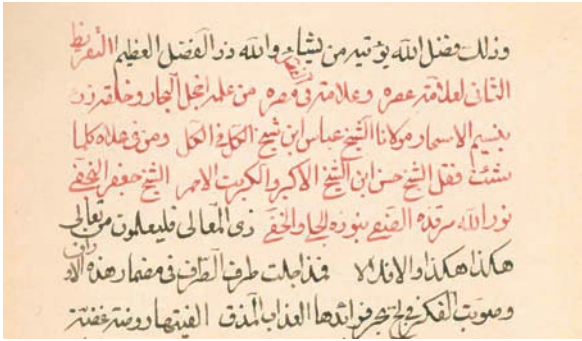 وذلك فضل الله يؤتيه من يشاء والله ذو الفضل العظيم التقريظ
الثانى لعلامة عصره وعلامة فى مصره من علمه اخجل البحار وخلقه زرى
بنسيم الاسحار مولانا الشيخ عباس ابن شيخ الكل فى الكل ومن فى علاه كلما
شئت فقل الشيخ حسن ابن الشيخ الاكبر والكبريت الاحمر الشيخ جعفر النجفى
نور الله مرقده بنوره الجلى والخفى ذى المعالى فليعلون من تعالى
هكذا هكذا والا فلا لا قد اجلت طرف الطرف فى مضمار هذه الاوراق
وصوبت الفكر فى لج بحر فوائدها العذاب المذق الفيتها روضة غضة